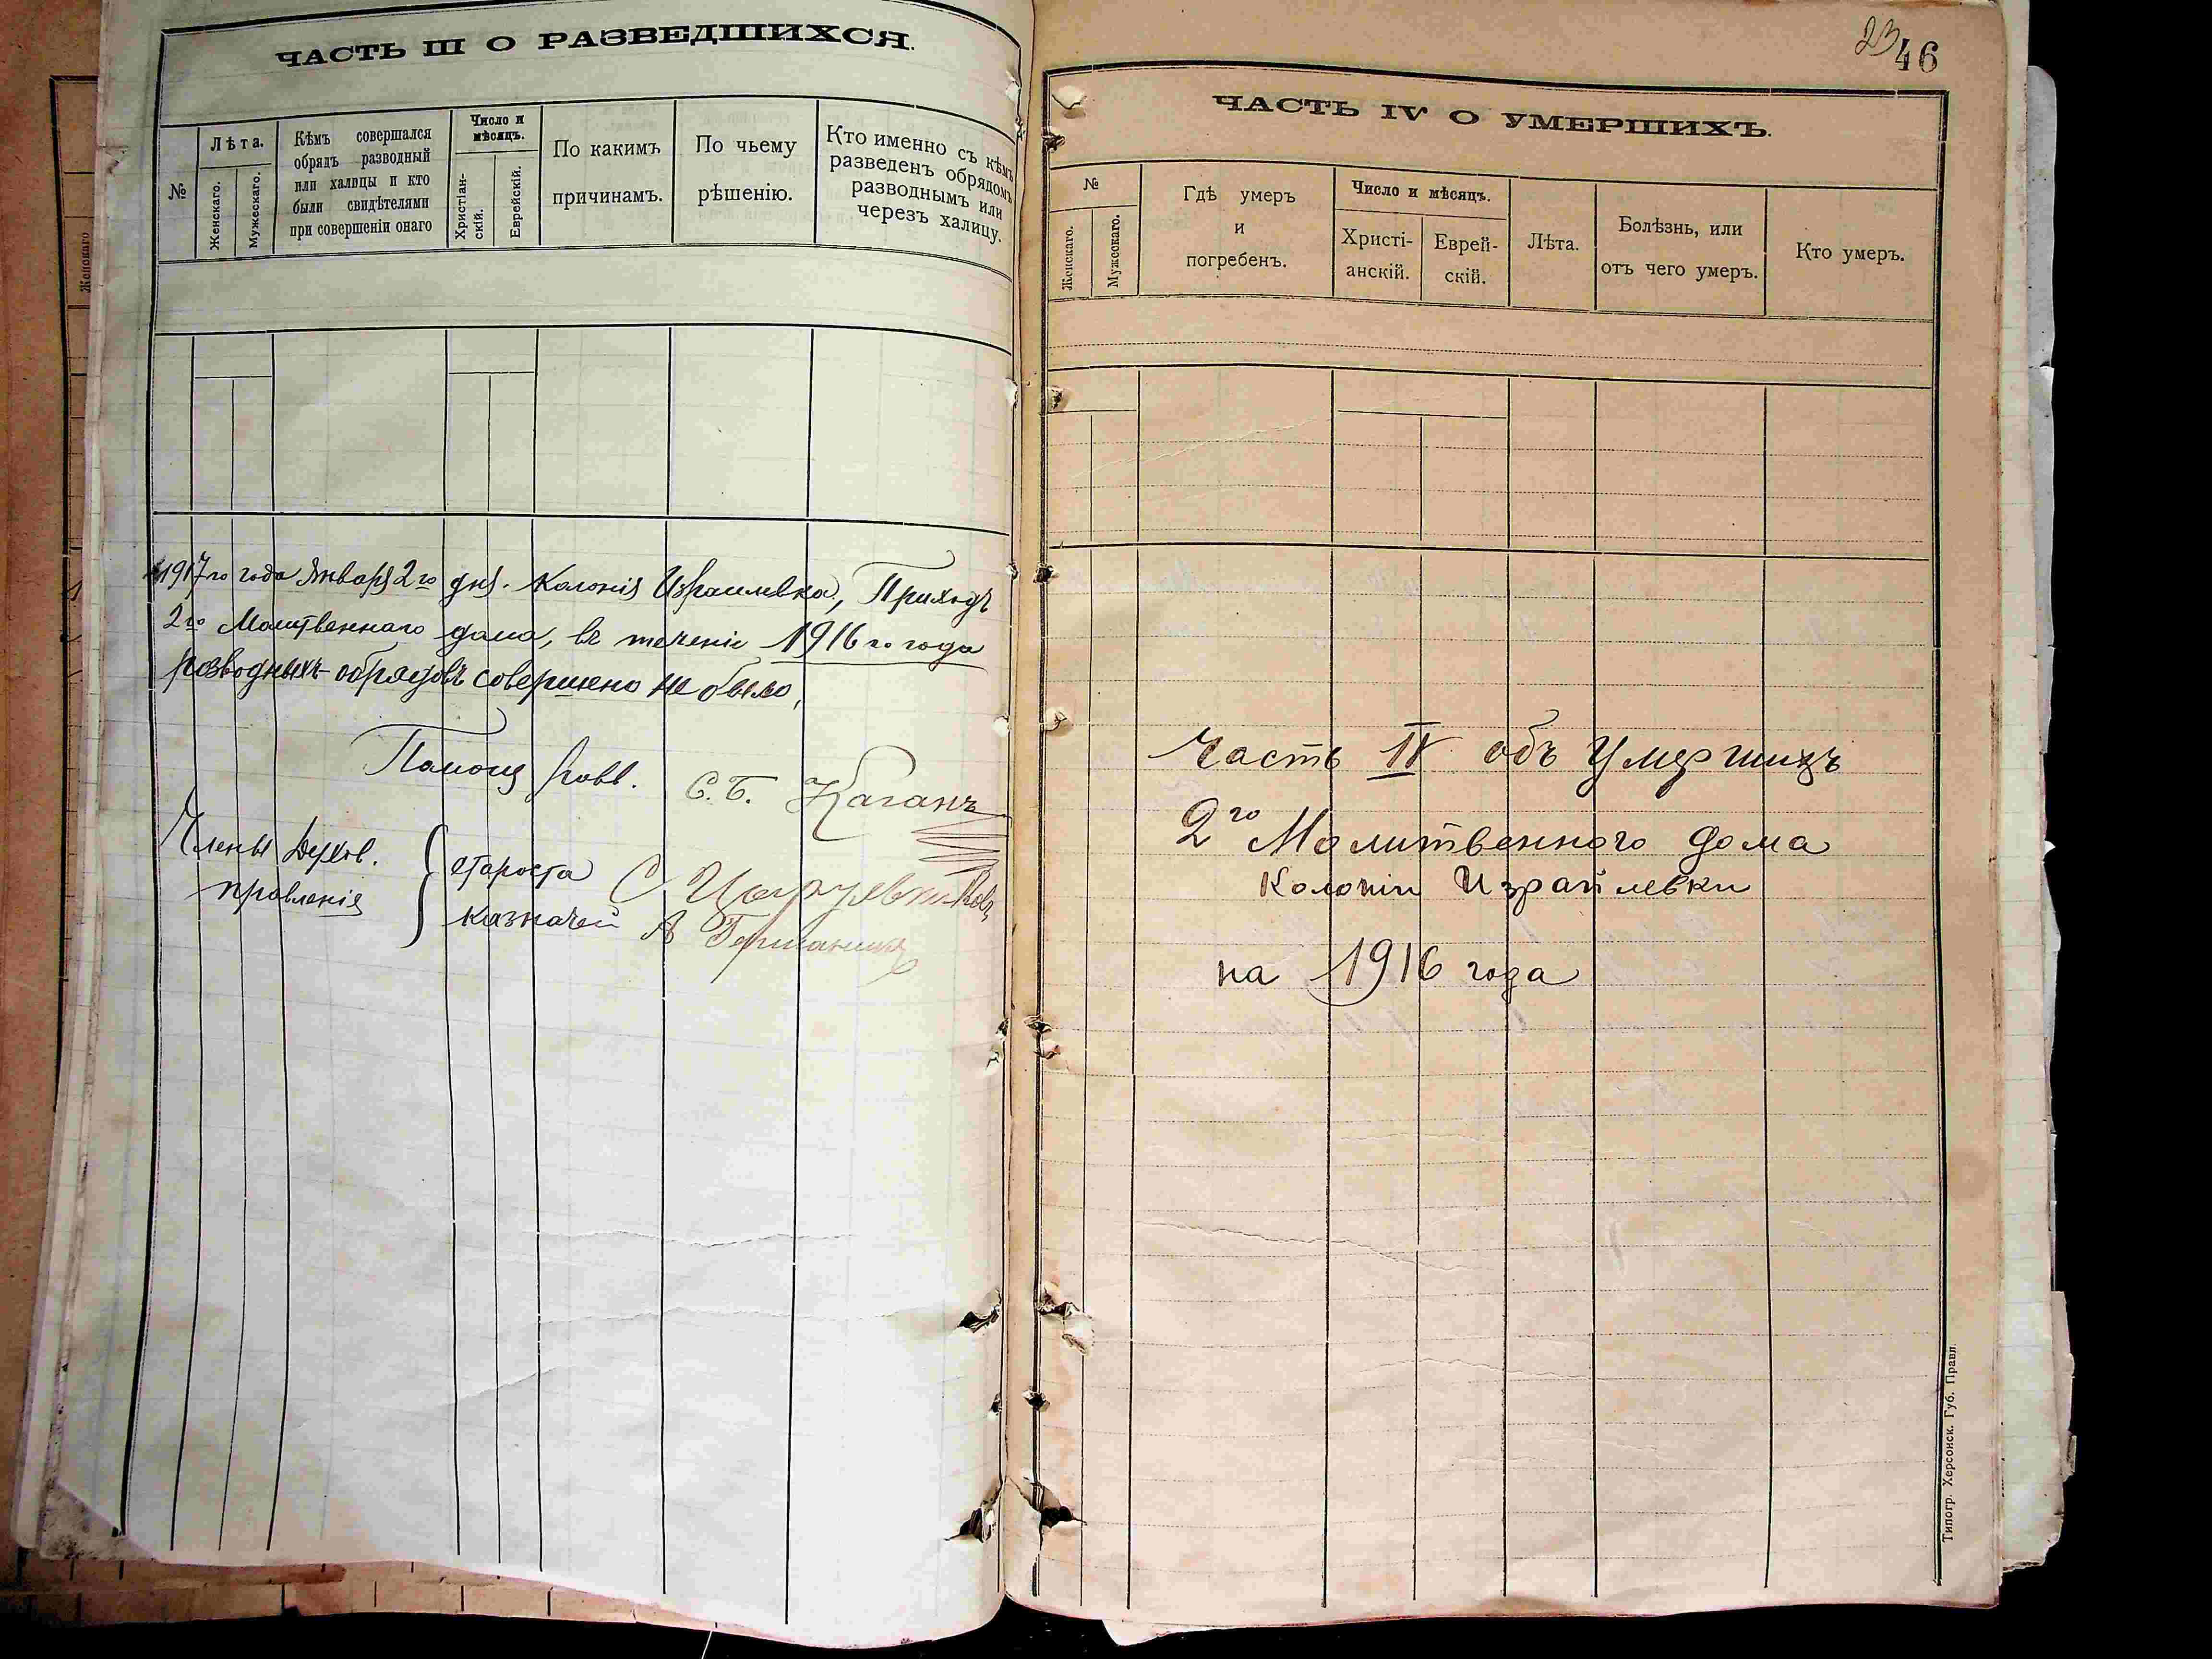 ЧАСТЬ III О РАЗВЕДШИХСЯ.
№
Лѣта.
Женскаго.
Мужескаго.
Кѣмъ совершался
обрядъ разводный
или халицы и кто
были свидѣтелями
при совершеніи онаго
Число и
мѣсяцъ.
Христіан-
скій.
Еврейскій.
По какимъ
причинамъ.
По чьему
рѣшенію.
Кто именно съ кѣмъ
разведенъ обрядомъ
разводнымъ или
черезъ халицу.
1917 го года Января 2 го дня. Колонія Израилевка, Приходъ
2 го Молитвеннаго дома, въ теченіи 1916 го года
разводныхъ обрядовъ совершено не было,
Помощ Равв. С. Б. Каганъ
Члены Духов.
правленія
староста С
казначей А
Женскаго
23
46
ЧАСТЬ IV О УМЕРШИХЪ.
№
Женскаго.
Мужескаго.
Гдѣ умеръ
и
погребенъ.
Число и мѣсяцъ.
Христі-
анскій.
Еврей-
скій.
Лѣта.
Болѣзнь, или
отъ чего умеръ.
Кто умеръ.
Часть IV объ Умершихъ
2го Молитвенного дома
Колоніи Израйлевки
на 1916 года
Типогр. Херсонск. Губ. Правл.